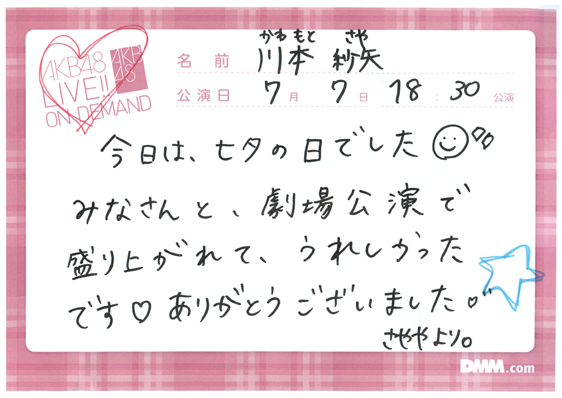 AKB48
LIVE!!
ON DEMAND
AKB
48
かわもと さや
名前 川本 紗矢
公演日 7月 7日 18:30 公演
今日は、七夕の日でした
みなさんと、劇場公演で
盛り上がれて、うれしかった
です♡ありがとうございました。
さややより。
DMM.com